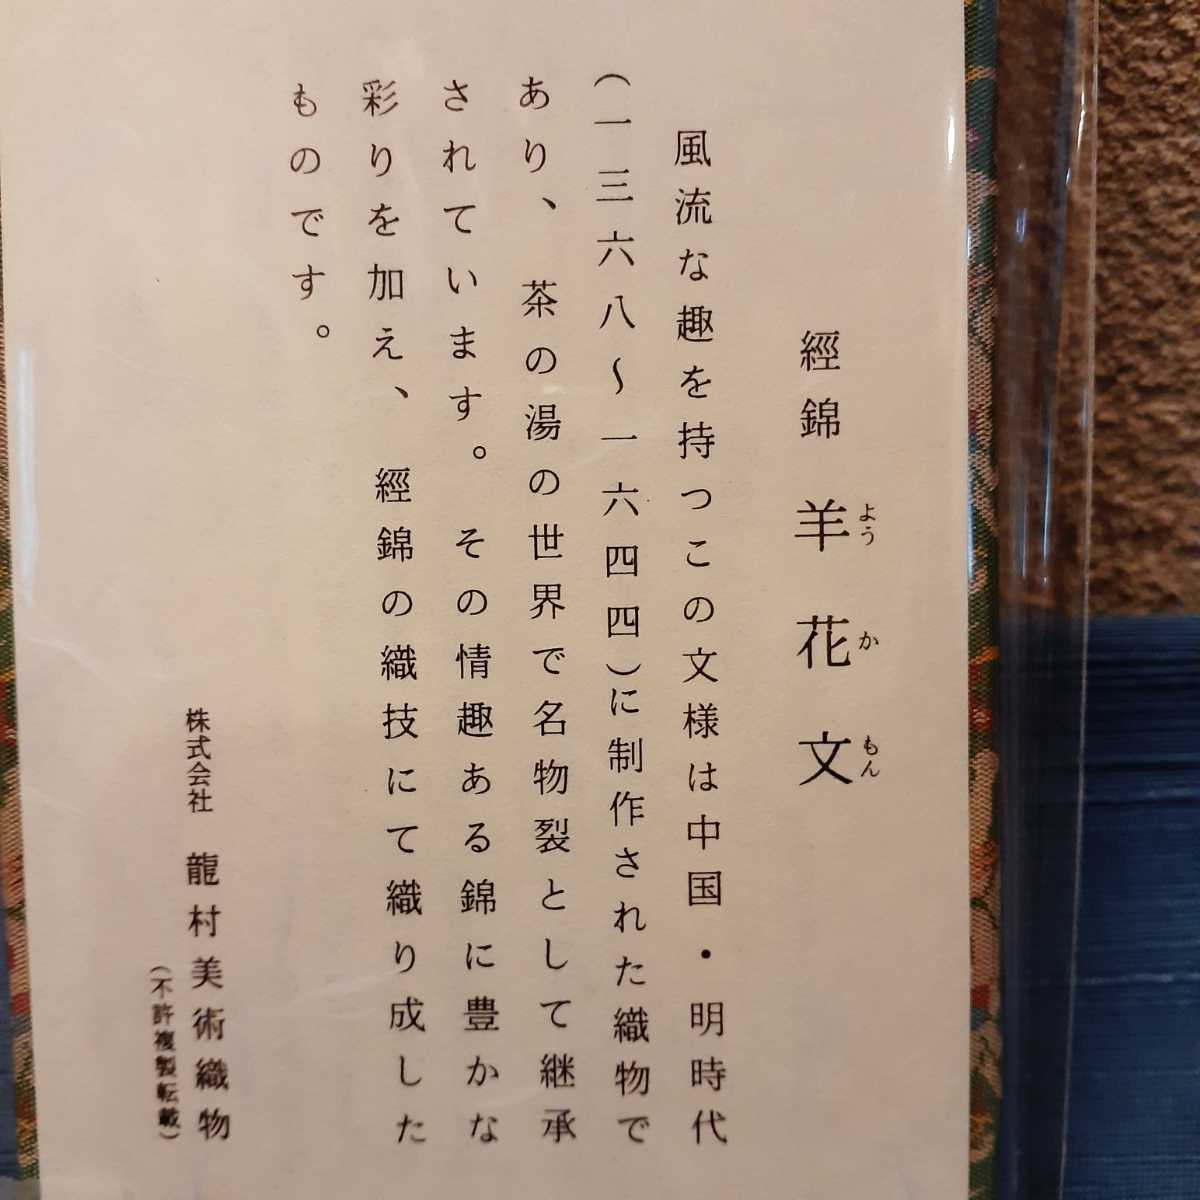 經錦 羊花文
よう か もん
風流な趣を持つこの文様は中国・明時代
(一三六八〜一六四四)に制作された織物で
あり、茶の湯の世界で名物裂として継承
されています。その情趣ある錦に豊かな
彩りを加え、經錦の織技にて織り成した
ものです。
株式会社 龍村美術織物
(不許複製転載)